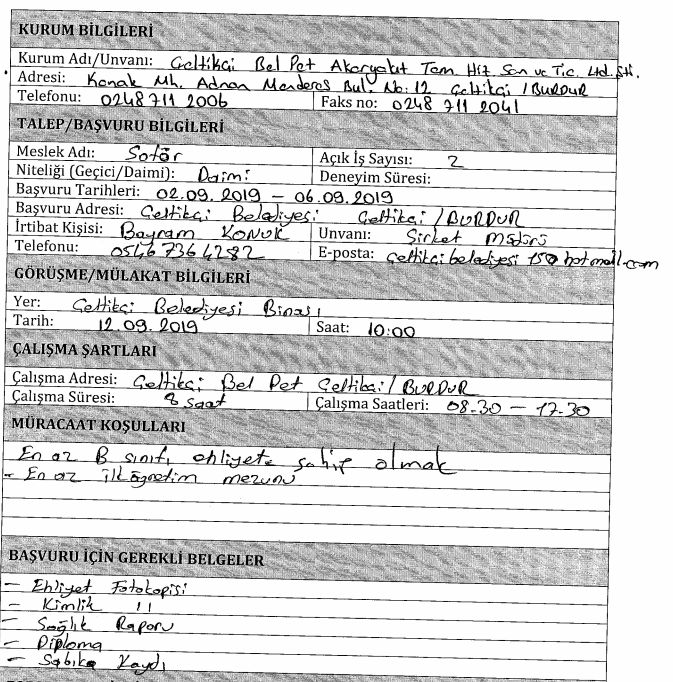 KURUM BİLGİLERİ
Kurum Adı/Unvanı: Çeltikçi Bel Pet Akaryakıt Tem. Hiz San ve Tic. Ltd. Şti.
Adresi: Konak Mh. Adnan Menderes Bul. No:12 Çeltikçi / BURDUR
Telefonu: 0248 711 2006 Faks no: 0248 711 2041
TALEP/BAŞVURU BİLGİLERİ
Meslek Adı: Şoför Açık İş Sayısı: 2
Niteliği (Geçici/Daimi): Daimi Deneyim Süresi:
Başvuru Tarihleri: 02.09.2019 – 06.09.2019
Başvuru Adresi: Çeltikçi Belediyesi Çeltikçi / BURDUR
İrtibat Kişisi: Bayram KONUK Unvanı: Şirket Müdürü
Telefonu: 0546 736 4282 E-posta: celtikcibelediyesi 15@hotmail.com
GÖRÜŞME/MÜLAKAT BİLGİLERİ
Yer: Çeltikçi Belediyesi Binası
Tarih: 12.09.2019 Saat: 10:00
ÇALIŞMA ŞARTLARI
Çalışma Adresi: Çeltikçi Bel Pet Çeltikçi / BURDUR
Çalışma Süresi: 8 saat Çalışma Saatleri: 08.30 – 17.30
MÜRACAAT KOŞULLARI
En az B sınıfı ehliyete sahip olmak
- En az ilköğretim mezunu
BAŞVURU İÇİN GEREKLİ BELGELER
- Ehliyet Fotokopisi
- Kimlik 11
- Sağlık Raporu
- Diploma
- Sabıka Kaydı